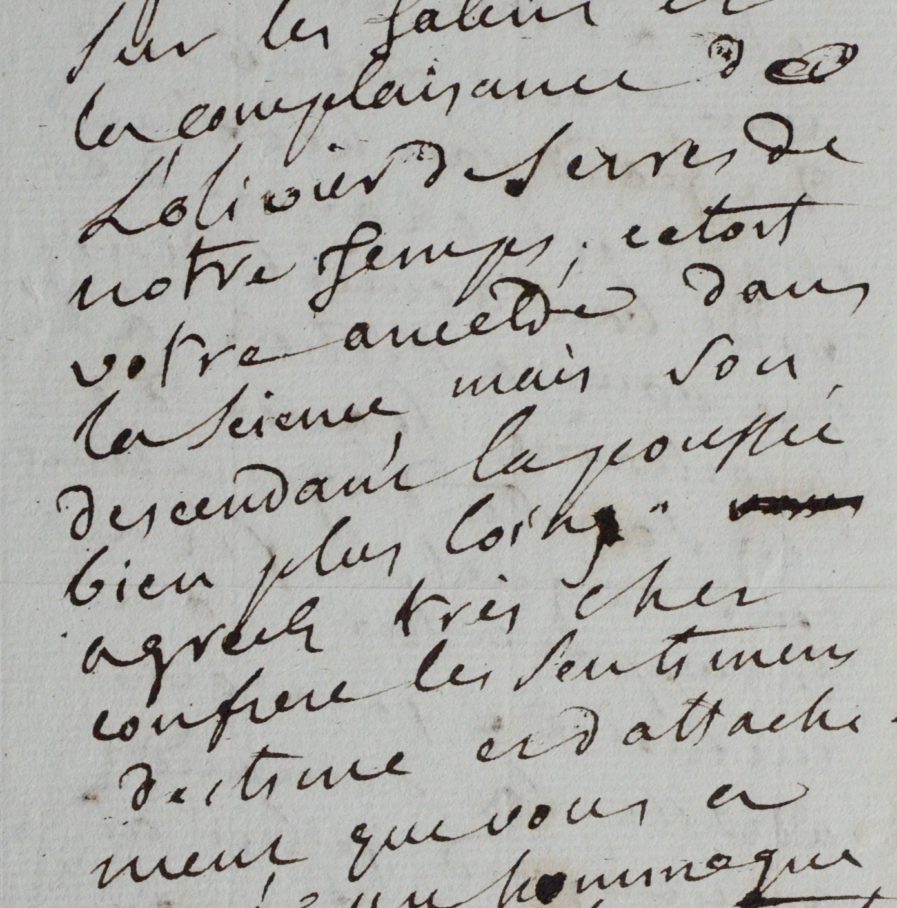 sur les talens et
la complaisance d
L'olivier de Serres de
notre temps, cetoit
votre ancetre dans
la science mais son
descendant la poussée
bien plus loing"
agreés très cher
confrere les sentimens
destime et dattache-
ment que vous a
un homme que